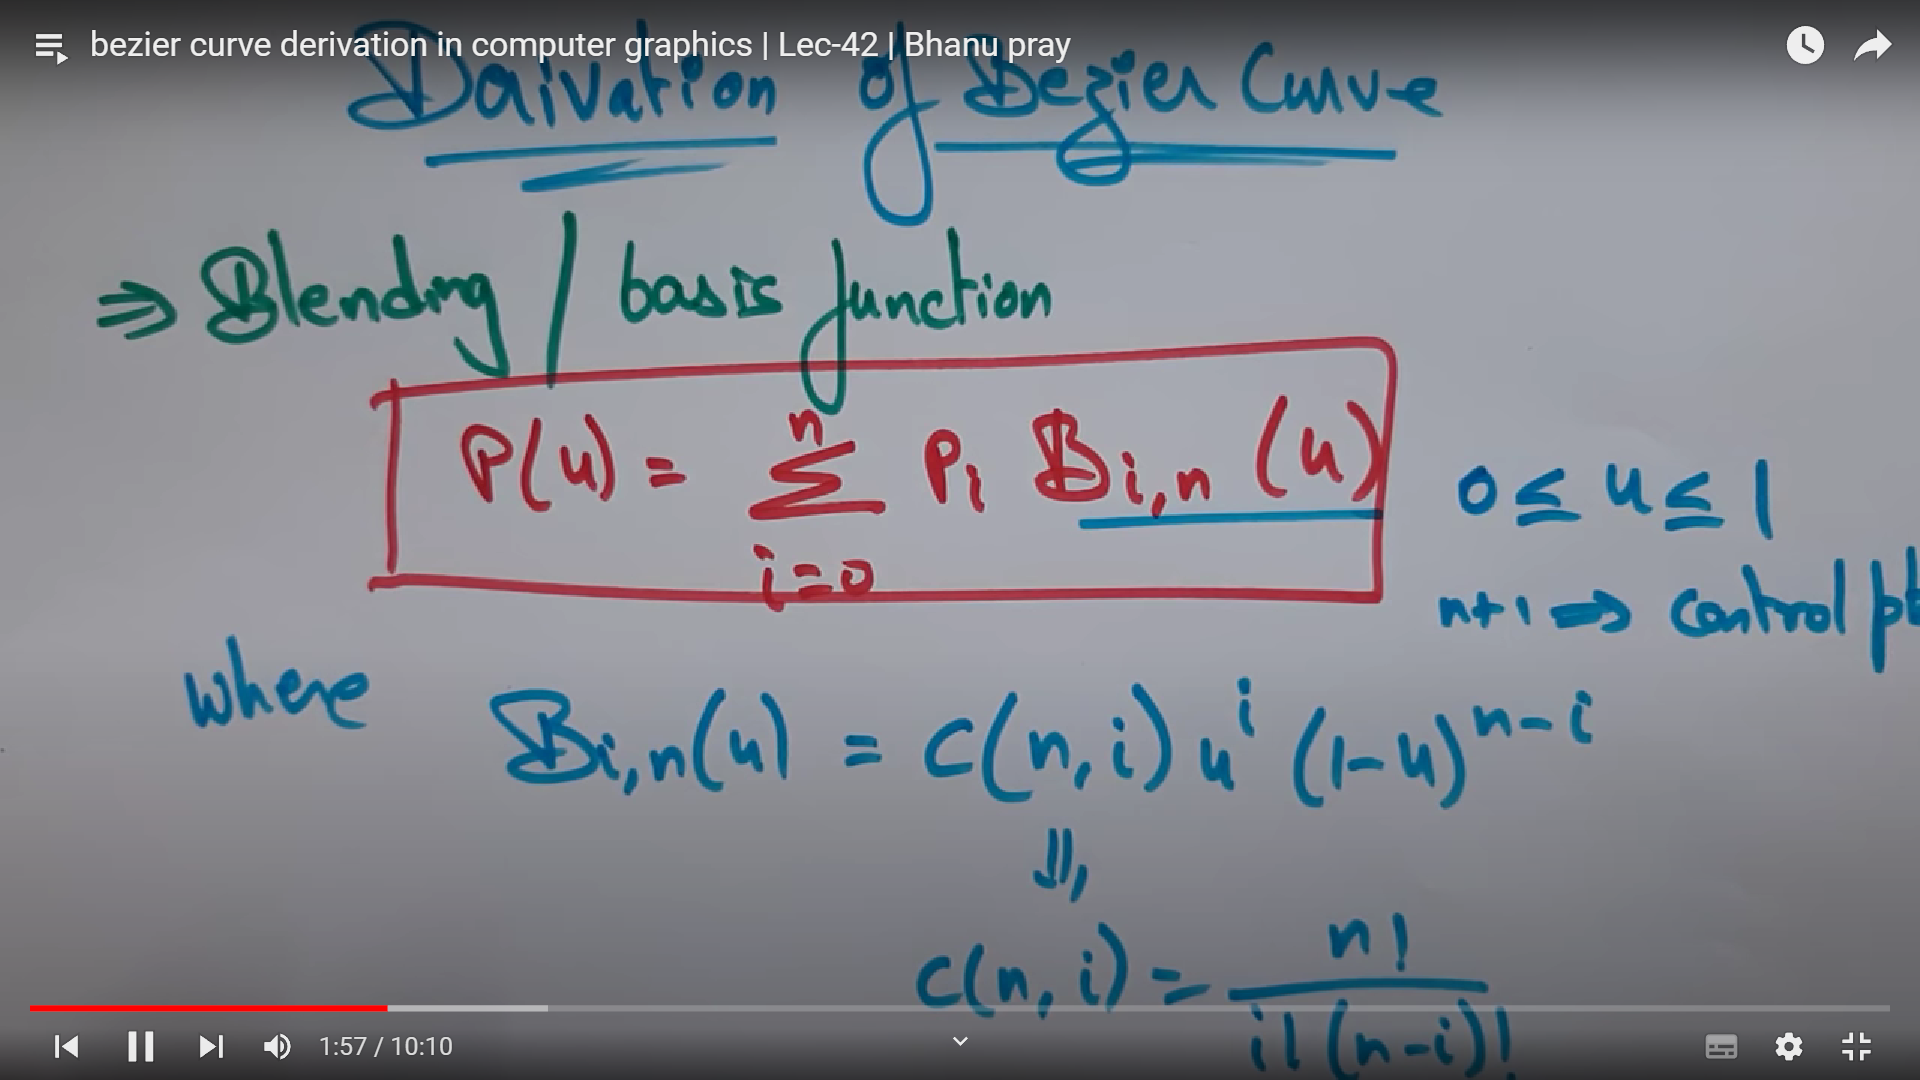 bezier curve derivation in computer graphics | Lec-42 | Bhanu pray
Derivation of Bezier Curve
⇒ Blending / basis function
P(u) = n Σ i=0 Pi Bi,n (u)
0 ≤ u ≤ 1
n+1 ⇒ control pt
where Bi,n(u) = C(n,i) u^i (1-u)^n-i
C(n,i) = n! / i! (n-i)!
1:57 / 10:10